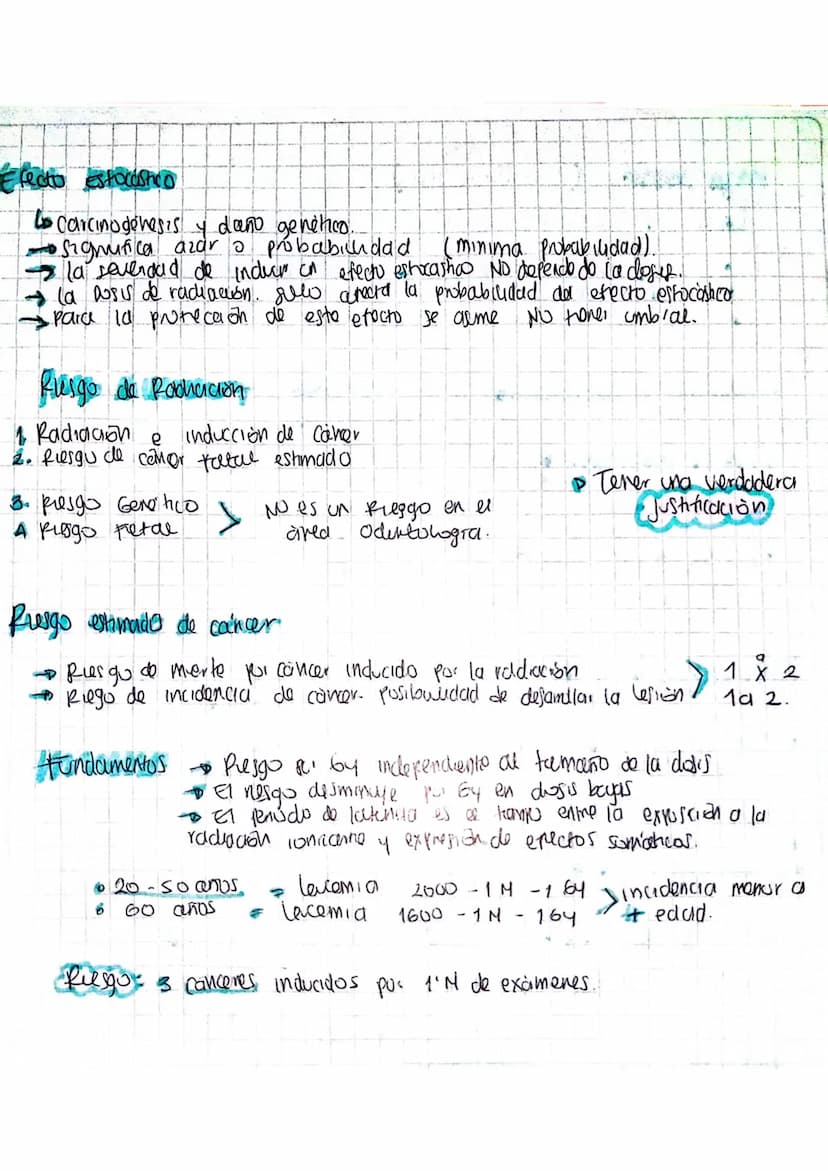 Efecto Estocástico
↳ Carcinogénesis y daño genético.
→ Significa azar o probabilidad (mínima probabilidad).
→ la severidad de inducir un efecto estocástico NO depende de la dosis.
→ la dosis de radiación. sólo afecta la probabilidad del efecto estocástico
→ para la protección de este efecto se asme NO tener umbral.
Riesgo de Radiación
1. Radiación e inducción de cáncer
2. Riesgo de cáncer fatal estimado
3. Riesgo Genético > NO es un Riesgo en el
4 Riesgo Fetal área Odontología.
→ Tener una verdadera
Justificación
Riesgo estimado de cáncer
→ Riesgo de merte por cáncer inducido por la radiación > 1 x 2
→ Riego de incidencia de cáncer. Posibilidad de desarrollar la lesión 1 a 2.
Fundamentos → Riesgo Gy independiente al tamaño de la dosis
→ El riesgo disminuye por Gy en dosis bajas
→ El periodo de latencia es el tiempo entre la exposición a la
radiación ionizante y expresión de efectos somáticos.
• 20 - 50 años = leucemia 2000 - 1 M - 1 Gy > incidencia menor a
• 60 años = leucemia 1600 - 1 M - 1 Gy + edad.
Riesgo: 3 cánceres inducidos por 1'M de exámenes.